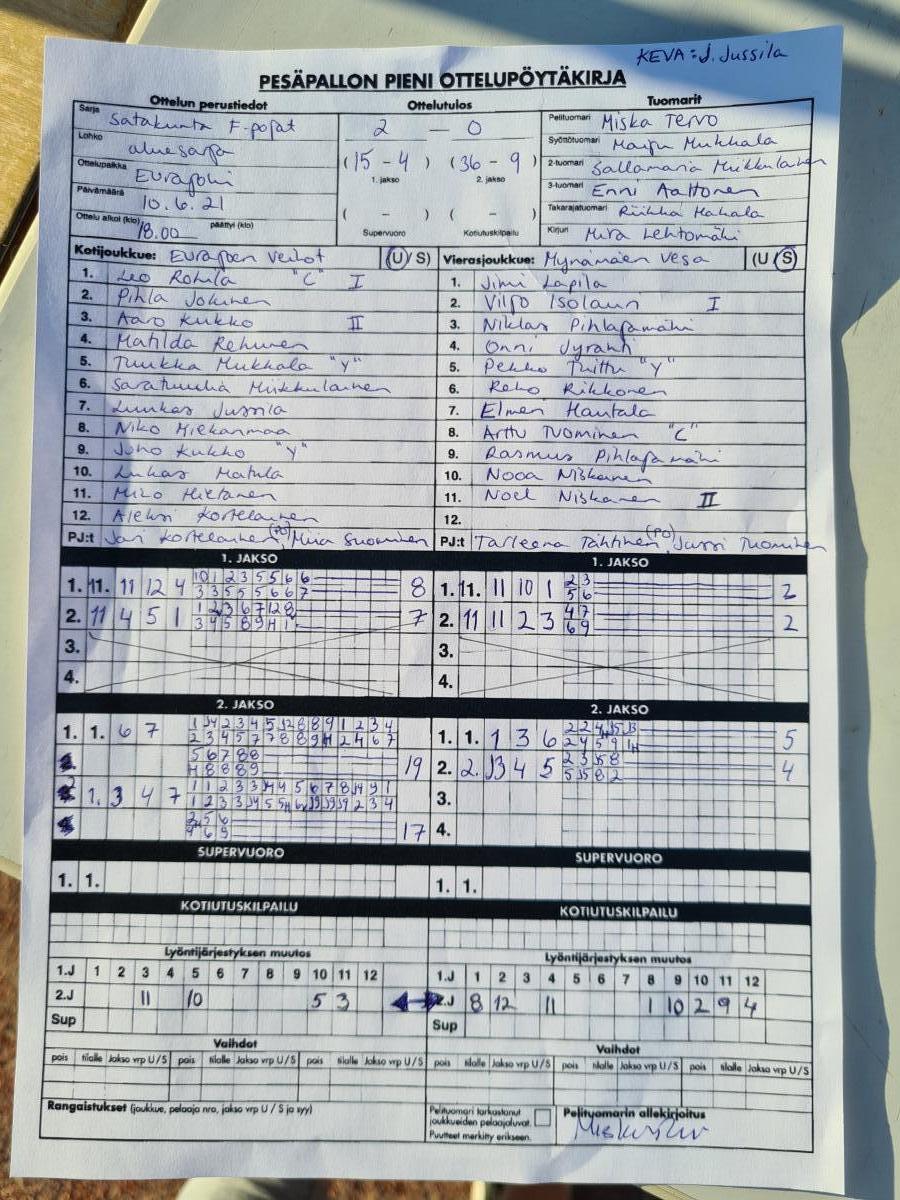 KEVA: J. Jussila
PESÄPALLON PIENI OTTELUPÖYTÄKIRJA
Ottelun perustiedot
Sarja Satakunta F-pojat
Lohko aluesarja
Ottelupaikka Eurajoki
Päivämäärä 10.6.21
Ottelu alkoi (klo) 18.00 päättyi (klo)
Ottelutulos
2 — 0
(15 – 4) (36 – 9)
1. jakso 2. jakso
( – ) ( – )
Supervuoro Kotiutuskilpailu
Tuomarit
Pelituomari Miska Tervo
Syöttötuomari Marju Mukkala
2-tuomari Sallamaria Miikkulainen
3-tuomari Enni Aaltonen
Takarajatuomari Riikka Hakala
Kirjuri Mira Lehtomäki
Kotijoukkue: Eurajoen Veikot (U/S)
1. Leo Rohila "C" I
2. Pihla Jokinen
3. Aaro Kukko II
4. Matilda Rehunen
5. Tuukka Mukkala "Y"
6. Saratuulia Miikkulainen
7. Luukas Jussila
8. Niko Hiekanmaa
9. Juho Kukko "Y"
10. Lukas Matula
11. Miro Hietanen
12. Aleksi Kortelainen
PJ:t Jari Kortelainen (PO), Miia Suominen
Vierasjoukkue: Mynämäen Vesa (U/S)
1. Jimi Lapila
2. Viljo Isolauri I
3. Niklas Pihlajamäki
4. Onni Jyränti
5. Pekko Tuittu "Y"
6. Reko Rikkonen
7. Elmeri Hautala
8. Arttu Tuominen "C"
9. Rasmus Pihlajamäki
10. Nooa Niskanen
11. Noel Niskanen II
12.
PJ:t Tarleena Tähtinen (PO), Jussi Tuominen
1. JAKSO
1. 11. 11 12 4 10 1 2 3 5 5 6 6 8
3 3 5 5 5 6 6 7
2. 11 4 5 1 7
3.
4.
1. JAKSO
1. 11. 11 10 1 2 3 2
5 6
2. 11 11 2 3 4 7 2
6 9
3.
4.
2. JAKSO
1. 1. 6 7
19
1. 3 4 7
17
2. JAKSO
1. 1. 1 3 6 5
2. 2. 3 4 5 4
3.
4.
SUPERVUORO
1. 1.
SUPERVUORO
1. 1.
KOTIUTUSKILPAILU
KOTIUTUSKILPAILU
Lyöntijärjestyksen muutos
1.J 1 2 3 4 5 6 7 8 9 10 11 12
2.J 11 10 5 3
Sup
Lyöntijärjestyksen muutos
1.J 1 2 3 4 5 6 7 8 9 10 11 12
2.J 8 12 11 1 10 2 9 4
Sup
Vaihdot
pois tilalle Jakso vrp U/S pois tilalle Jakso vrp U/S pois tilalle Jakso vrp U/S
Vaihdot
pois tilalle Jakso vrp U/S pois tilalle Jakso vrp U/S pois tilalle Jakso vrp U/S
Rangaistukset (joukkue, pelaaja nro, jakso vrp U / S ja syy)
Pelituomari tarkastanut
joukkueiden pelaajaluvat.
Puutteet merkitty erikseen.
Pelituomarin allekirjoitus